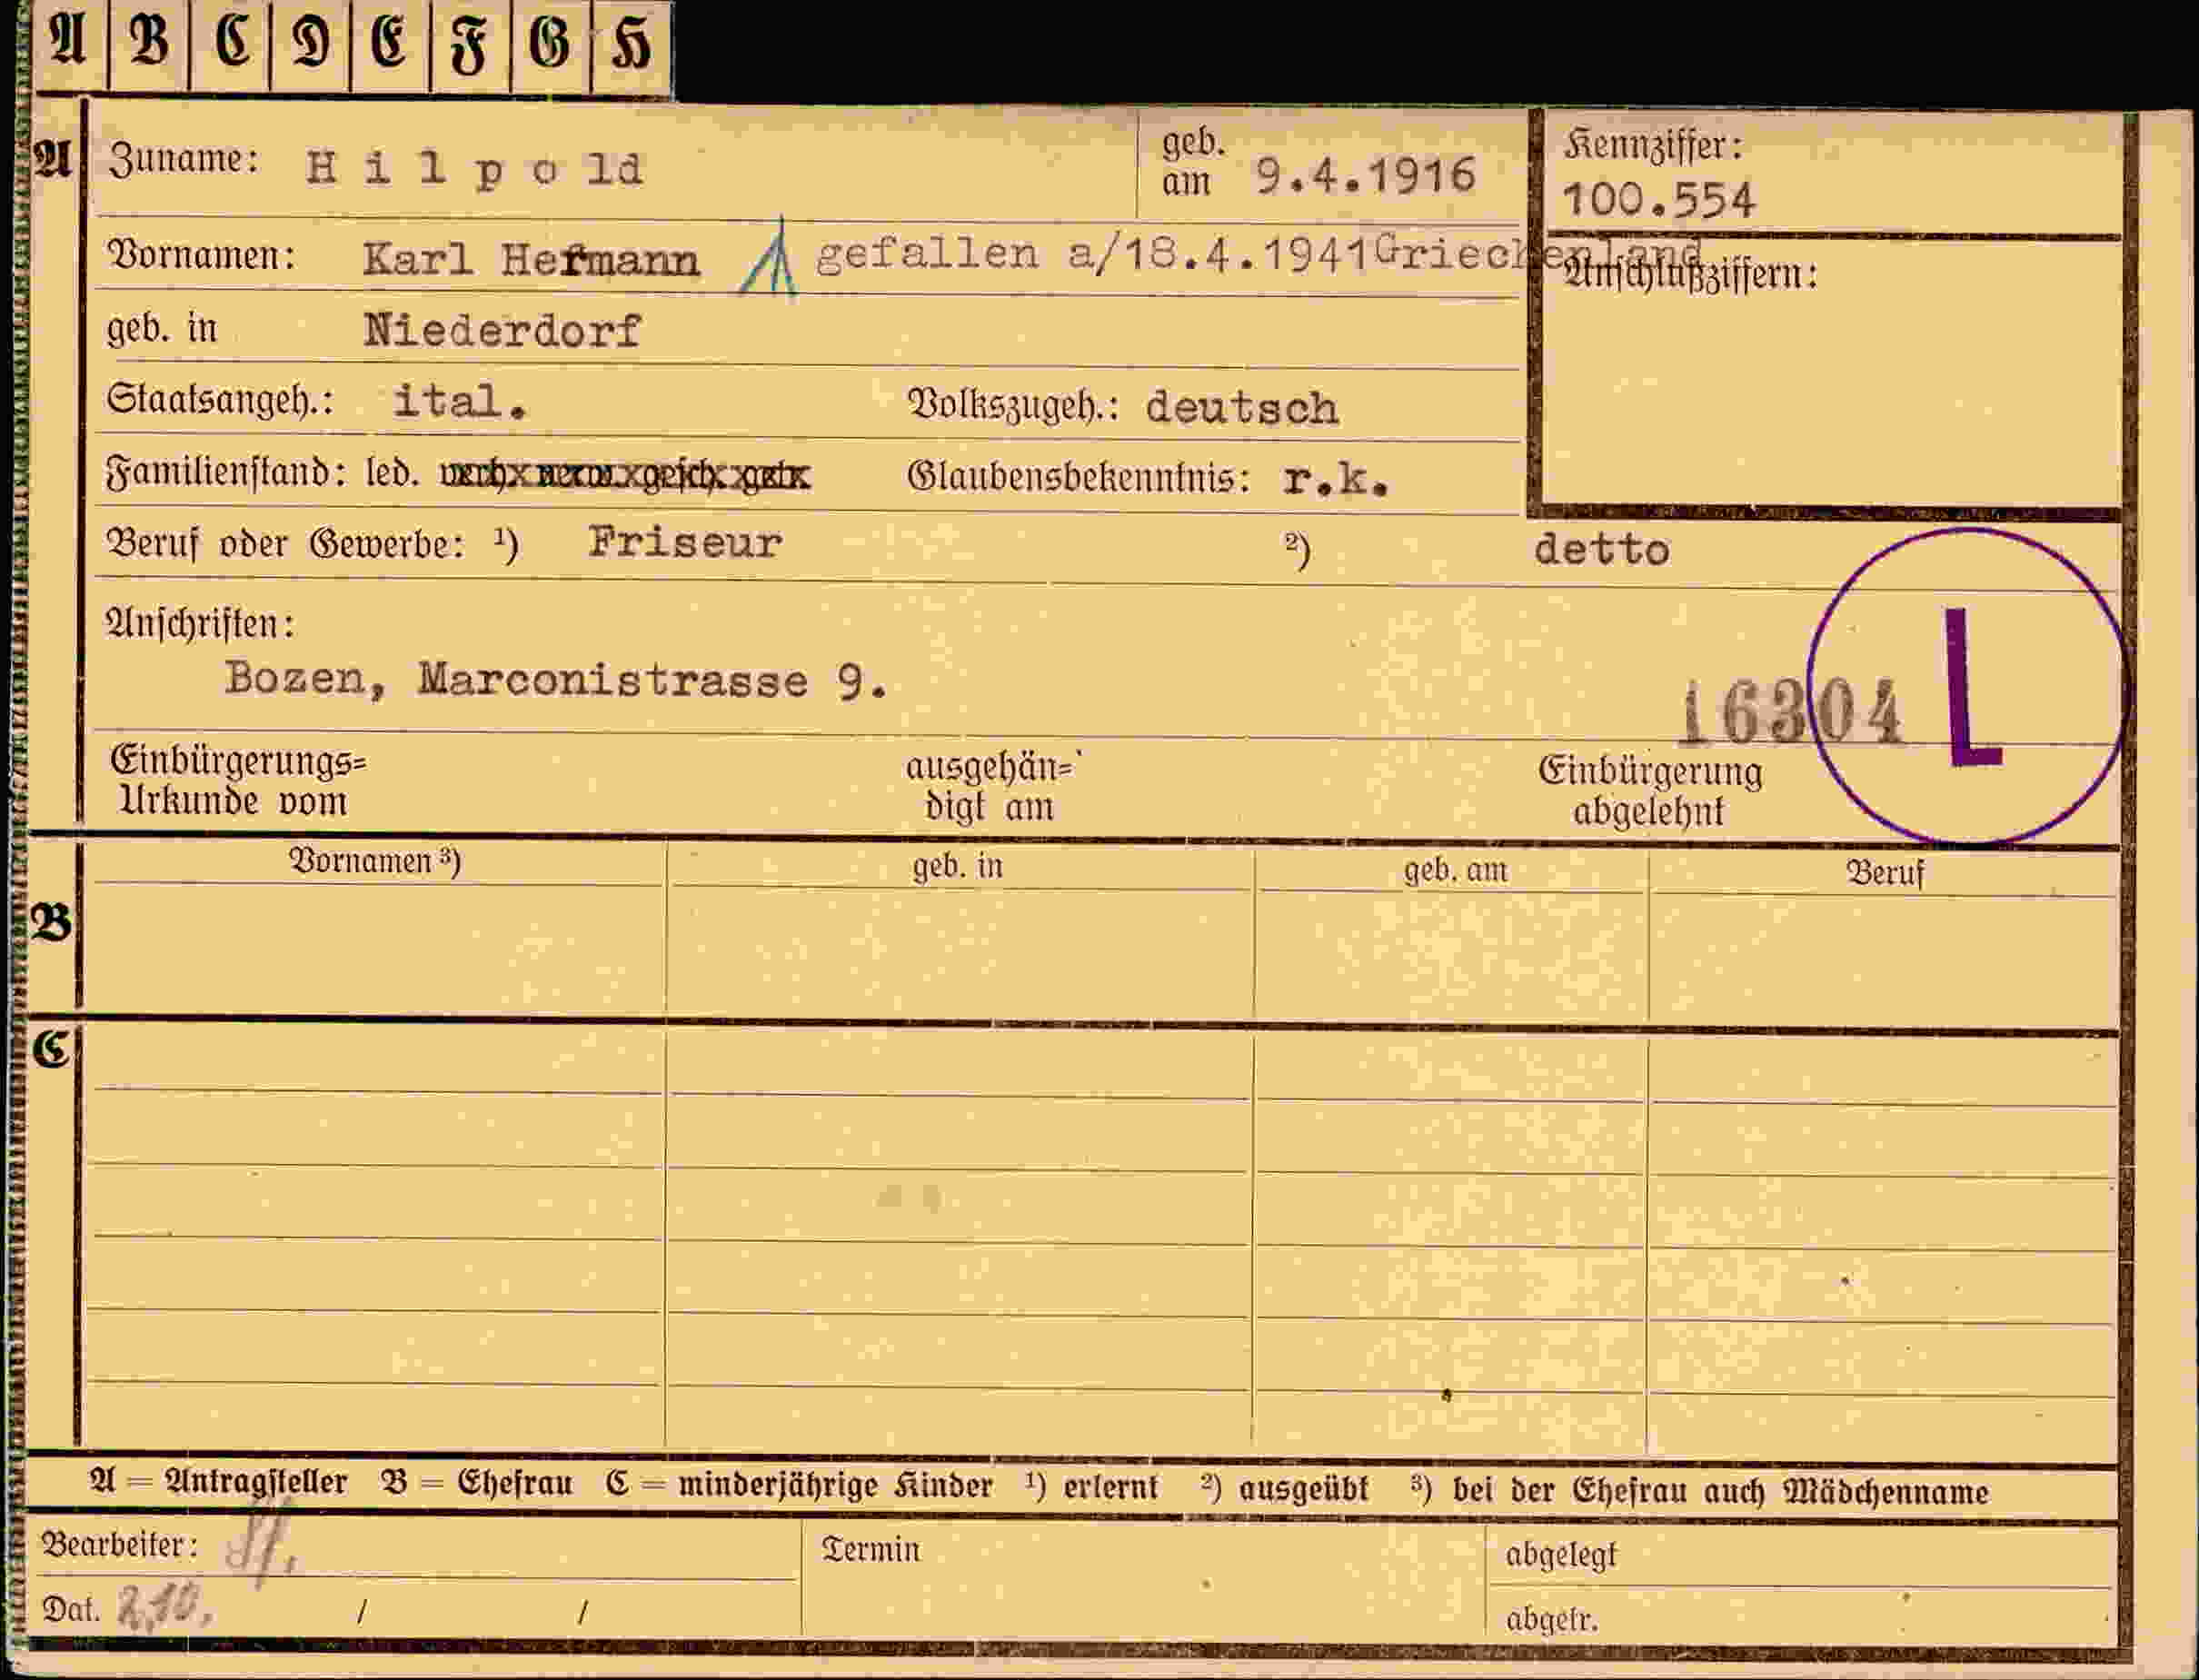 A B C D E F G H
A Zuname: Hilpold geb. am 9.4.1916 Kennziffer: 100.554
Vornamen: Karl Hermann gefallen a/18.4.1941Griechenland Anschlußziffern:
geb. in Niederdorf
Staatsangeh.: ital. Volkszugeh.: deutsch
Familienstand: led. verh. verw. gesch. getr. Glaubensbekenntnis: r.k.
Beruf oder Gewerbe: ¹) Friseur ²) detto
Anschriften:
Bozen, Marconistrasse 9.
16304 L
Einbürgerungs= Urkunde vom ausgehän= digt am Einbürgerung abgelehnt
B Vornamen ³) geb. in geb. am Beruf
C
A = Antragsteller B = Ehefrau C = minderjährige Kinder ¹) erlernt ²) ausgeübt ³) bei der Ehefrau auch Mädchenname
Bearbeiter: Termin abgelegt
Dat. 2.10. / / abgetr.